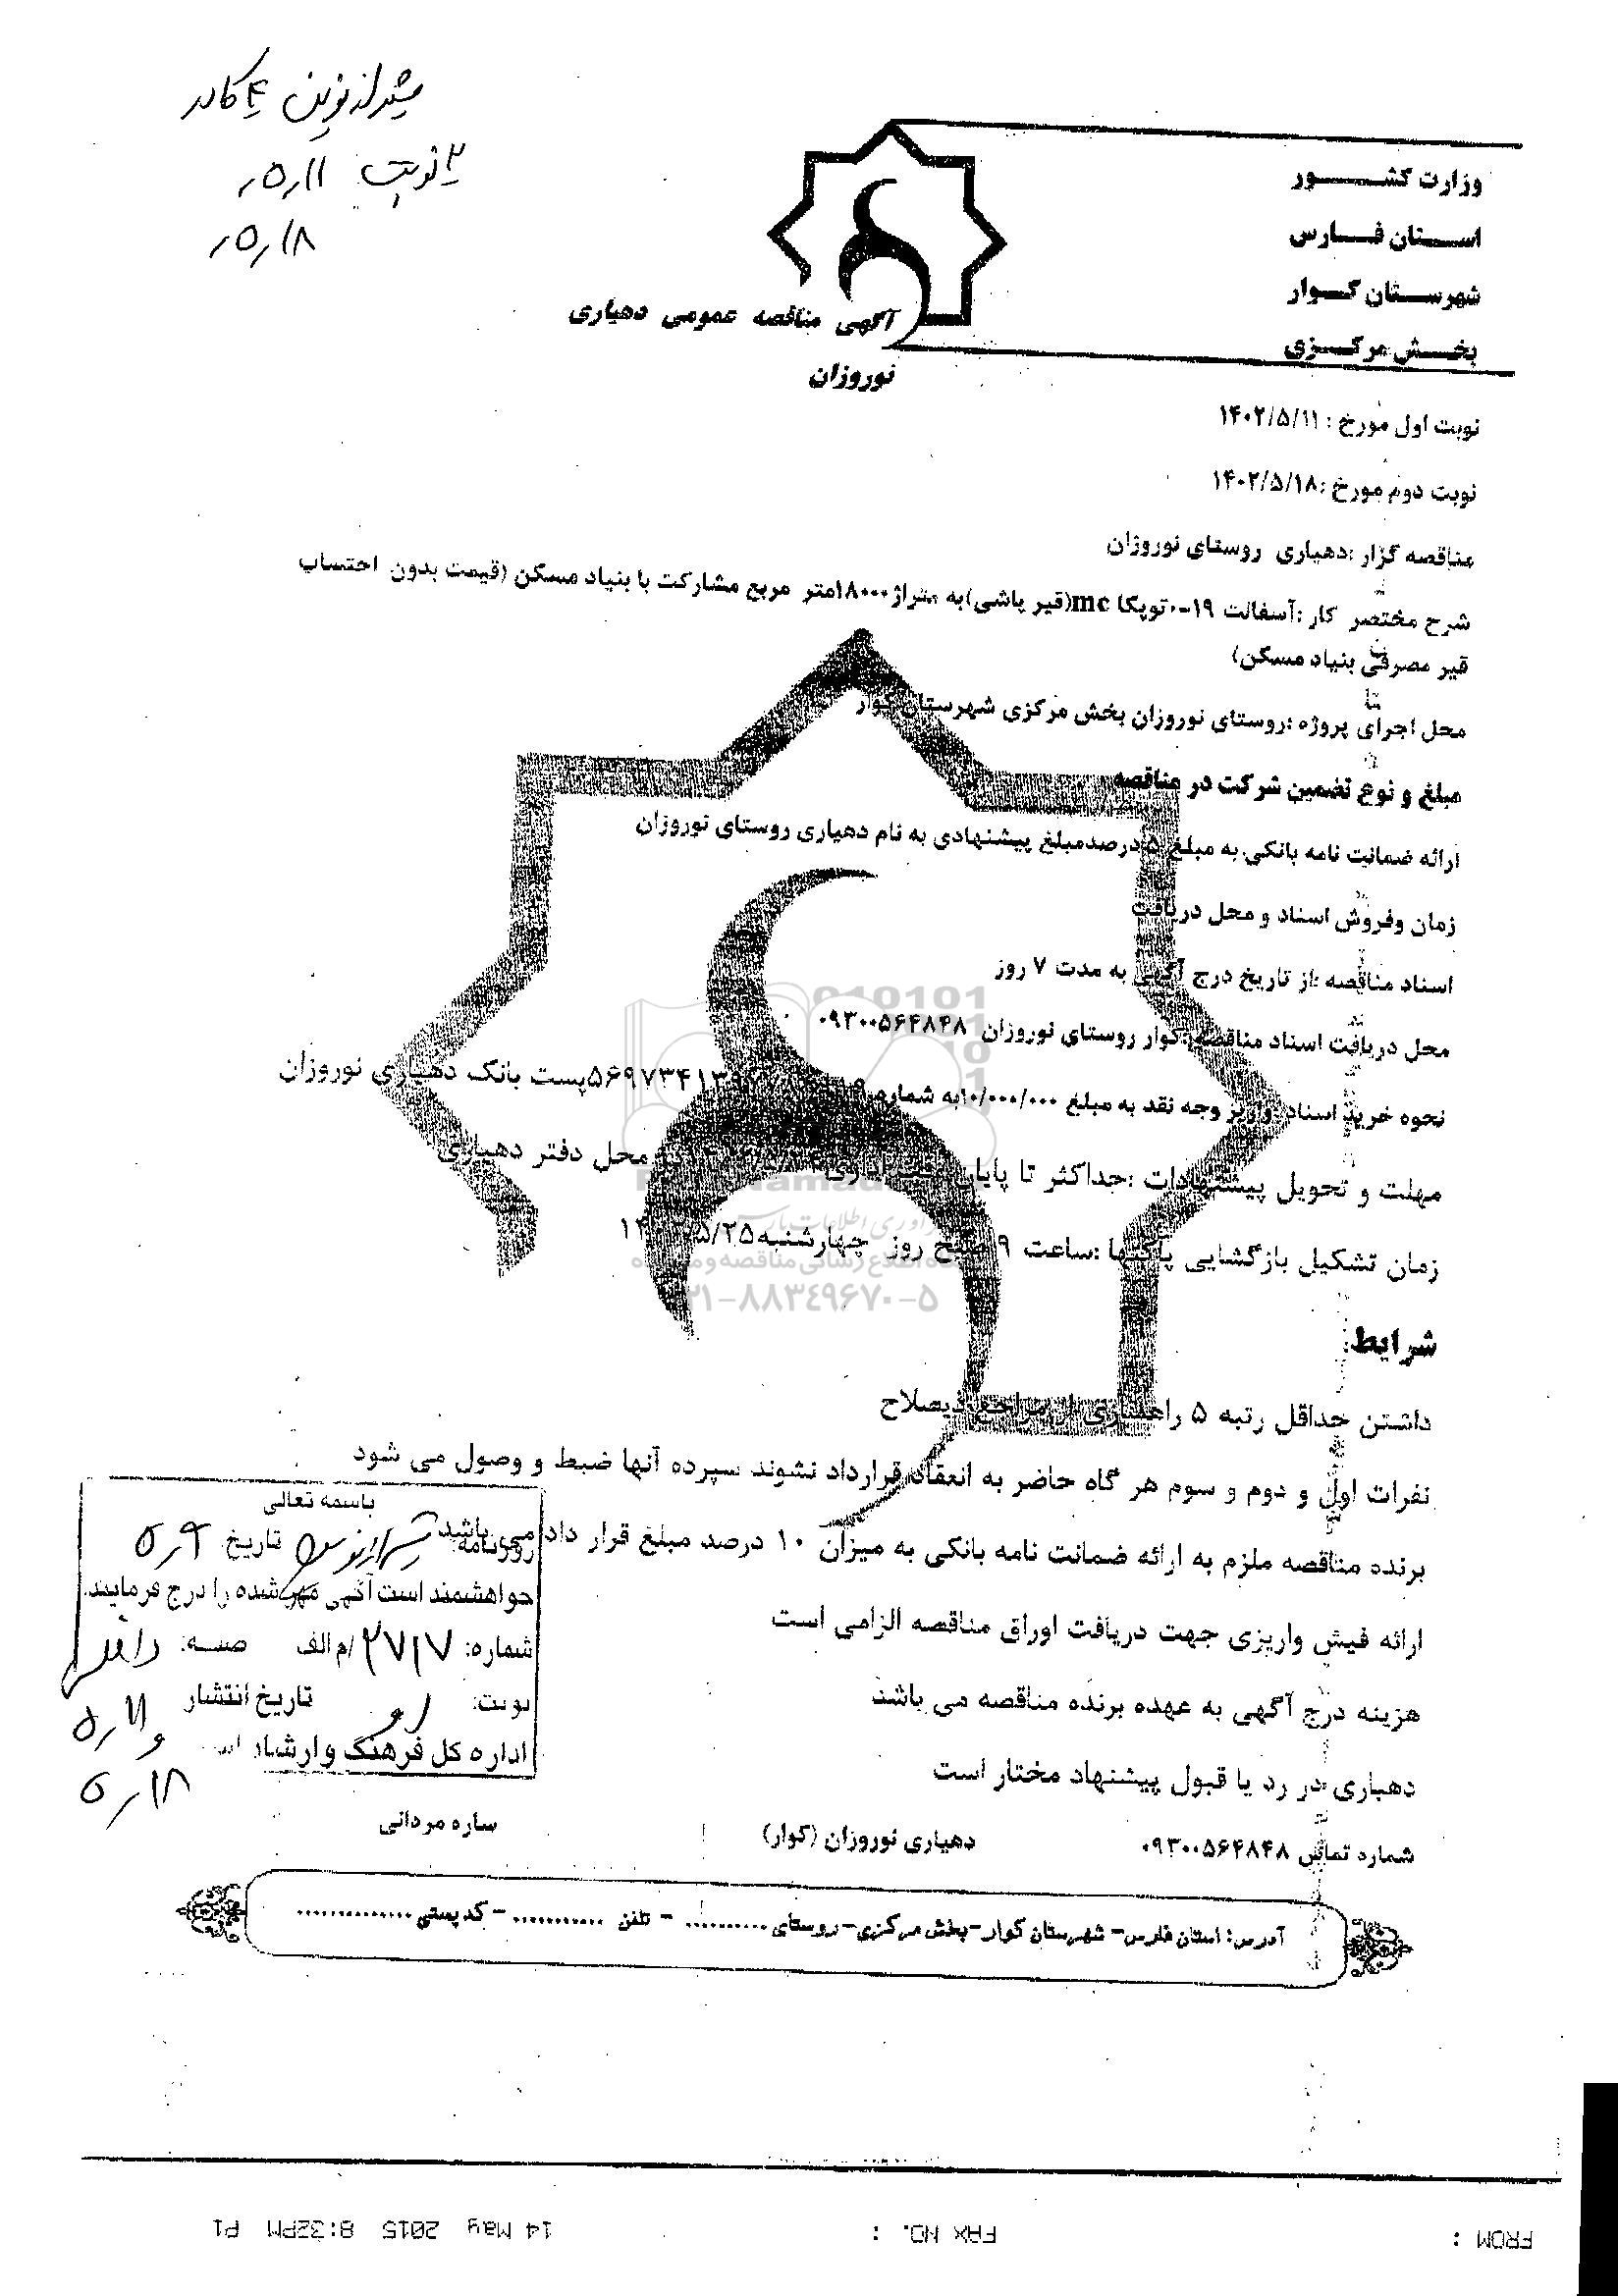 شیراز نوین ۴ کادر
۲ نوبت ۰۵/۱۱
۰۵/۱۸
وزارت کشور
استان فارس
شهرستان کوار
بخش مرکزی
آگهی مناقصه عمومی دهیاری
نوروزان
نوبت اول مورخ : ۱۴۰۲/۵/۱۱
نوبت دوم مورخ :۱۴۰۲/۵/۱۸
مناقصه گزار :دهیاری روستای نوروزان
شرح مختصر کار :آسفالت ۱۹-۰توپکا mc(قیر پاشی)به متراژ۱۸۰۰۰متر مربع مشارکت با بنیاد مسکن (قیمت بدون احتساب
قیر مصرفی بنیاد مسکن)
محل اجرای پروژه :روستای نوروزان بخش مرکزی شهرستان کوار
مبلغ و نوع تضمین شرکت در مناقصه
ارائه ضمانت نامه بانکی به مبلغ ۵ درصدمبلغ پیشنهادی به نام دهیاری روستای نوروزان
زمان وفروش اسناد و محل دریافت
اسناد مناقصه :از تاریخ درج آگهی به مدت ۷ روز
محل دریافت اسناد مناقصه :کوار روستای نوروزان ۰۹۳۰۰۵۶۴۸۴۸
نحوه خرید اسناد :واریز وجه نقد به مبلغ ۱۰/۰۰۰/۰۰۰به شماره پست بانک دهیاری نوروزان
مهلت و تحویل پیشنهادات :حداکثر تا پایان وقت اداری محل دفتر دهیاری
زمان تشکیل بازگشایی پاکتها :ساعت ۹ صبح روز چهارشنبه ۵/۲۵
۸۸۳۴۹۶۷۰-۵
شرایط:
داشتن حداقل رتبه ۵ راهسازی از مراجع ذیصلاح
نفرات اول و دوم و سوم هر گاه حاضر به انعقاد قرارداد نشوند سپرده آنها ضبط و وصول می شود
برنده مناقصه ملزم به ارائه ضمانت نامه بانکی به میزان ۱۰ درصد مبلغ قرار داد می باشد
ارائه فیش واریزی جهت دریافت اوراق مناقصه الزامی است
هزینه درج آگهی به عهده برنده مناقصه می باشد
دهیاری در رد یا قبول پیشنهاد مختار است
شماره تماس ۰۹۳۰۰۵۶۴۸۴۸ دهیاری نوروزان (کوار)
باسمه تعالی
روزنامه: شیراز نوین تاریخ: ۵/۹
خواهشمند است آگهی مهر شده را درج فرمایید.
شماره: ۲۷۱۷/م الف
نوبت: تاریخ انتشار ۵/۱۱
و ۵/۱۸
اداره کل فرهنگ و ارشاد
ساره مردانی
آدرس: استان فارس- شهرستان کوار-بخش مرکزی-روستای .......... - تلفن ........... - کدپستی ..............
FROM : FAX NO. : 14 May 2015 8:32PM P1